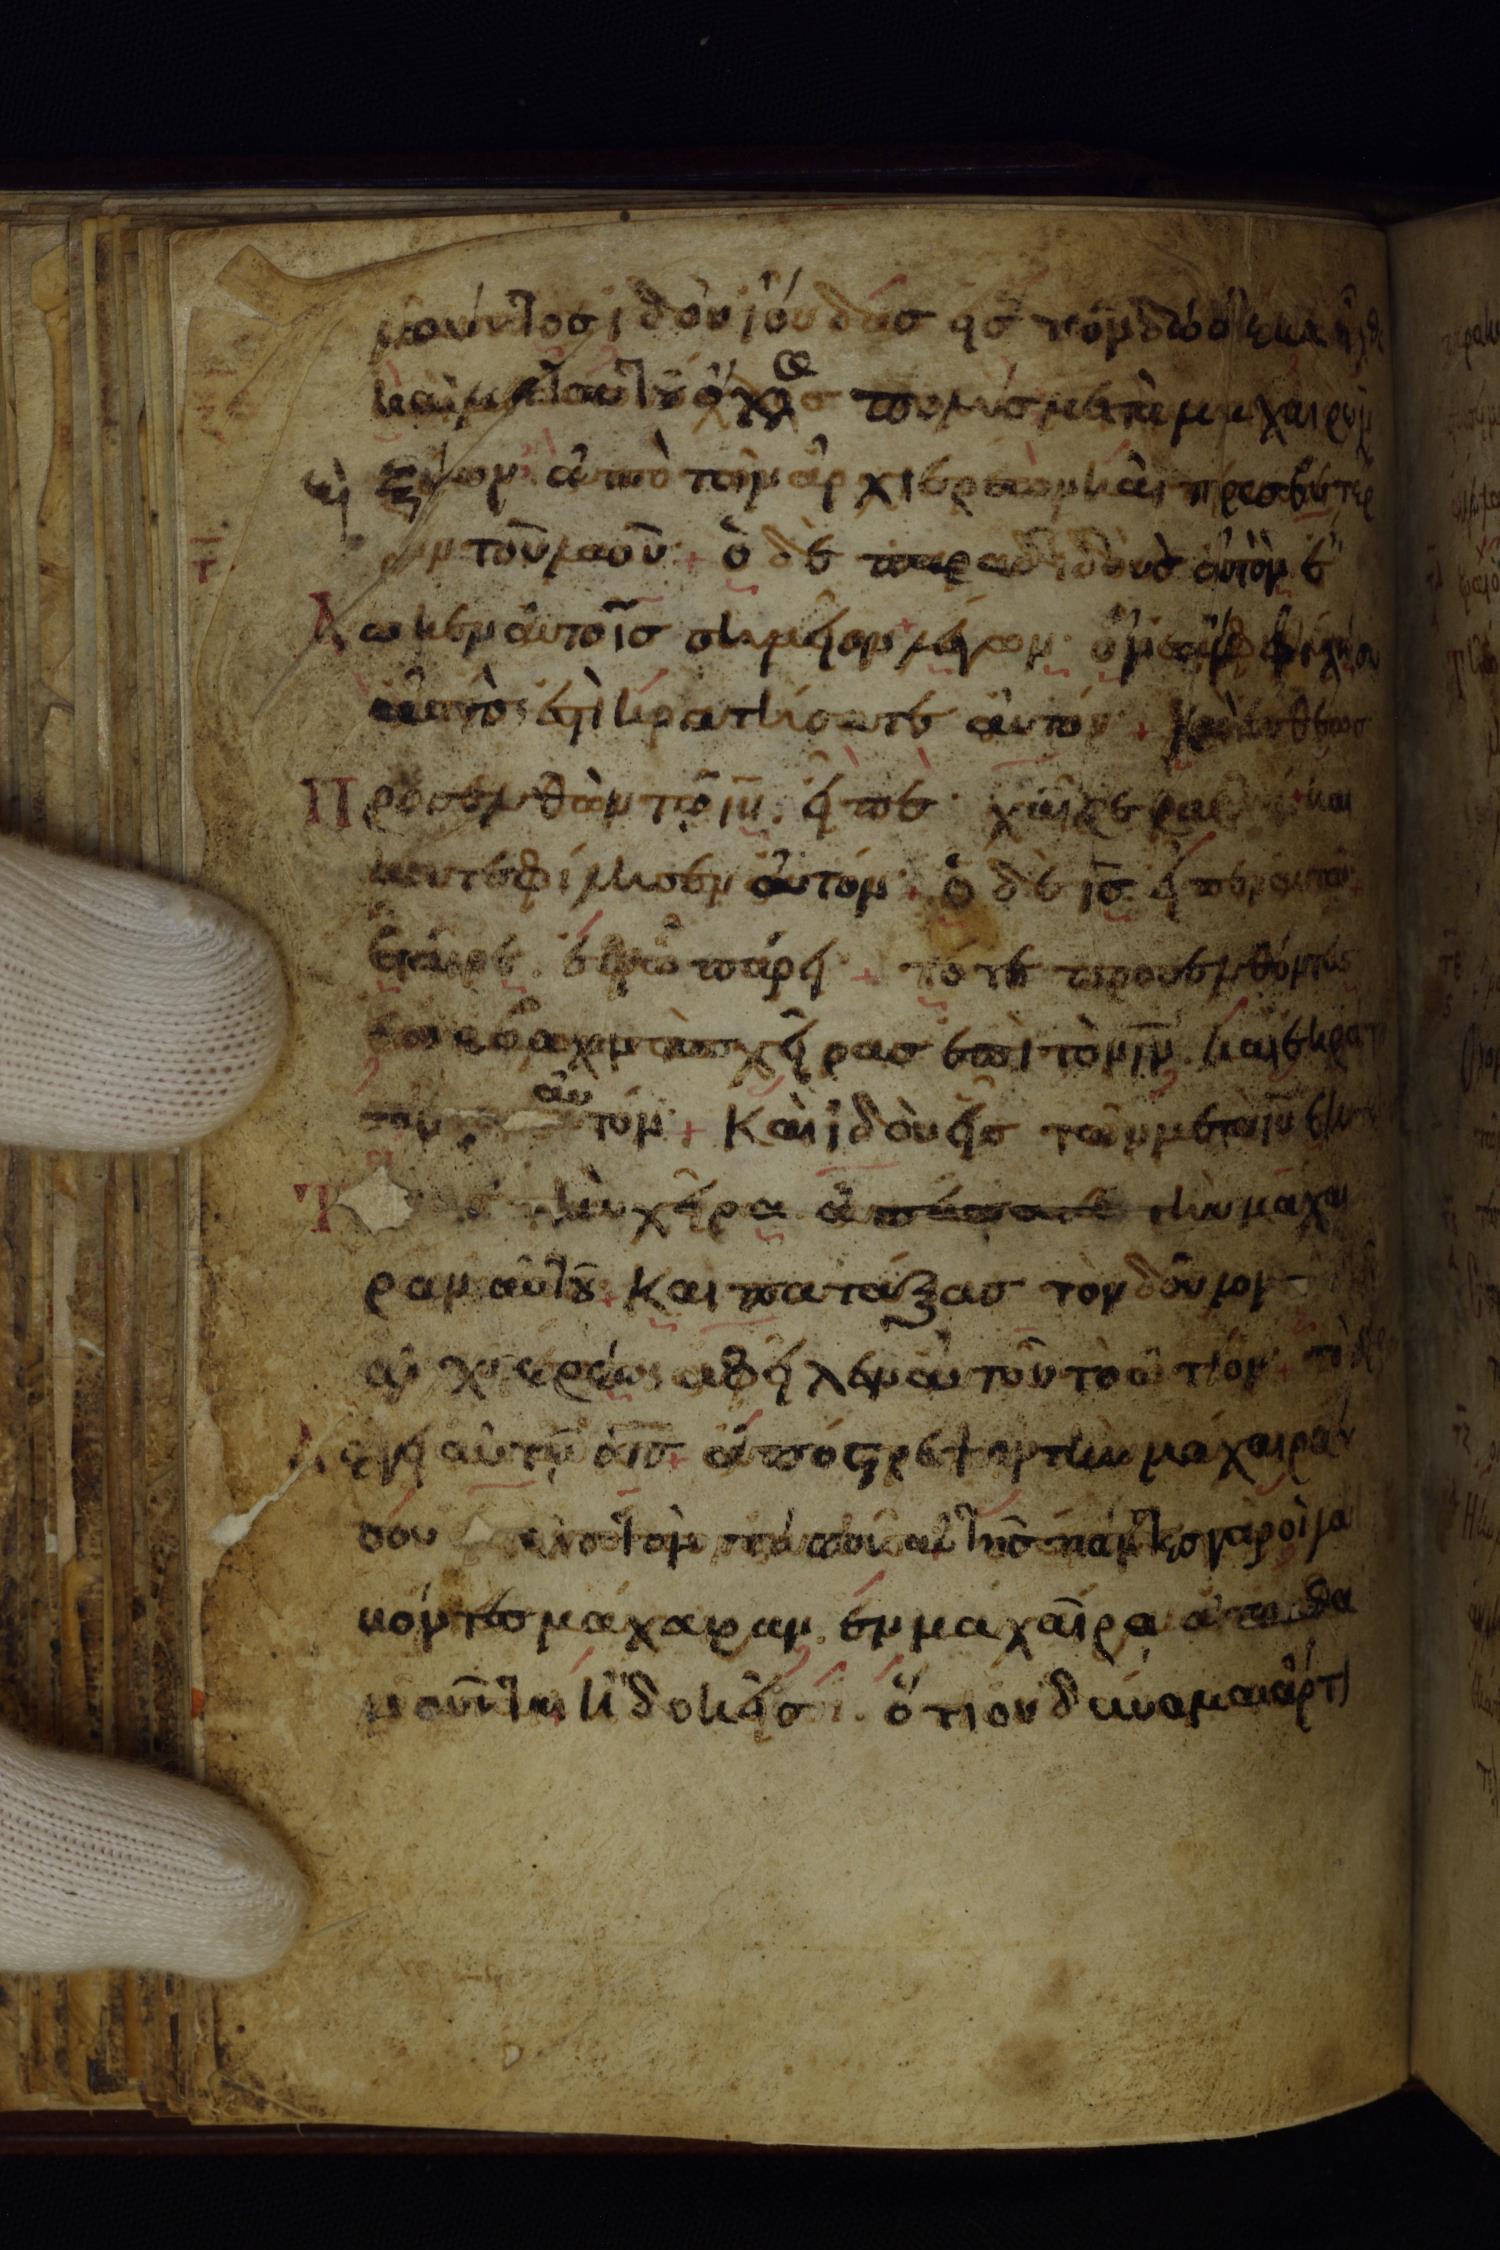 λουντος ϊδου ϊούδας ης τῶν δώδεκα ἦλθε
καὶ μετ αυτοῦ ὄχλος πολὺς μετὰ μαχαιρῶν
καὶ ξύλων ἀπὸ τῶν ἀρχιερέων καὶ πρεσβυτέρ
ων τοῦ λαοῦ + ὁ δὲ παραδιδοὺς αὐτὸν ἔ
Δωκεν αὐτοῖς σημήον λέγων ὃν ἂν φιλήσω
αὐτός ἐστὶ κρατήσατε αὐτόν + καὶ ευθέως
Προσελθὼν τῶ ιυ ἤπε χαῖρε ραββί + και
κατεφίλησεν ἀυτόν + ὁ δὲ ις ἤπεν αυτῶ +
Ἑταίρε ἐφ ὧ πάρη + τότε προσελθόντες
ἐπέβαλον τὰς χῆρας ἐπὶ τὸν ιν καὶ εκρατ
αὐτόν + Καὶ ϊδοὺ ἧς τῶν μετὰ ιυ ἐκ
τὴν χῆρα ἀπέσπασε τὴν μάχαι
ραν αὐτοῦ + Και πατάξας τὸν δοῦλον
ἀρχιερέως αφήλεν αυτοῦ τὸ ὠτίον + τότε
Λέγη αὐτῶ ὁ ις + ἀπόςρεψον τὴν μάχαιράν
σου εἰς τὸν τόπον αὐτῆς πάντες γὰρ οἱ λα
βόντες μάχαιραν ἐν μαχαῖρα ἀποθα
νοῦνται ἢ δοκῆς ὅτι οὐ δύναμαι ἄρτι